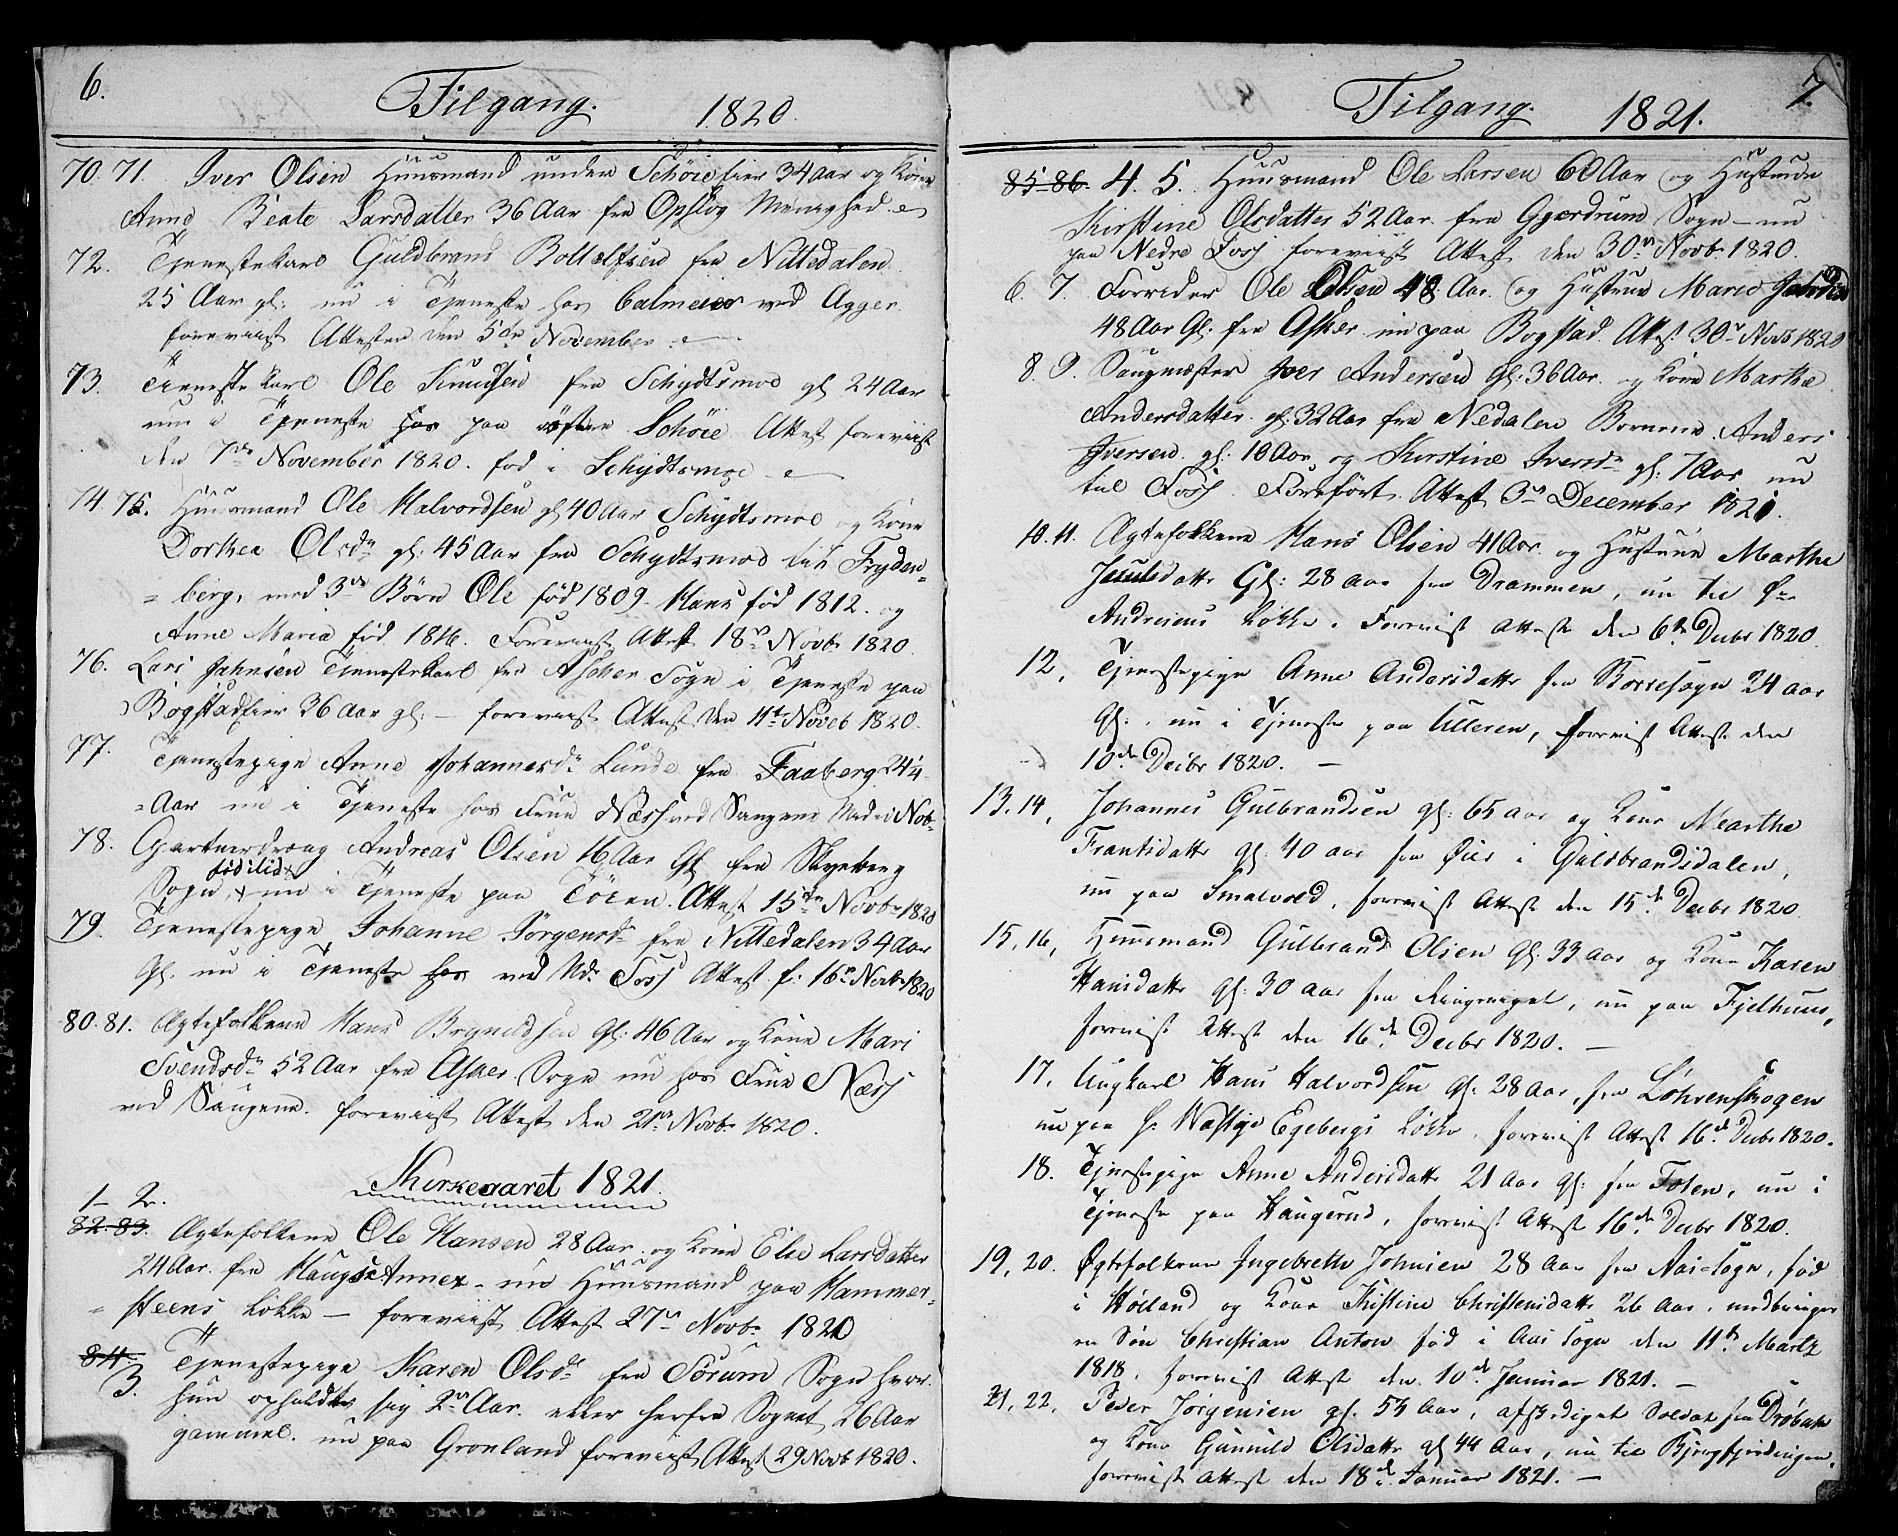 6.
Tilgang.
1820.
70. 71. Iver Olsen Huusmand under Schøieeier 34 Aar og Kone
Anne Beate Larsdatter 36 Aar fra Opslog Menighed.
72. Tjenestekarl Guldbrand Bottelfsen fra Nittedalen
25 Aar gl: nu i Tjeneste hos Calmeier ved Agger.
foreviist Attesten den 5te November.
73. Tjenestekarl Ole Knudsen fra Schydtsmoe gl 24 Aar
nu i Tjeneste hos paa østre Schøie Attest foreviist
den 7de November 1820. fød i Schydtsmoe
74 75. Huusmand Ole Halvordsen gl 40 Aar Schydtsmoe og Kone
Dorthea Olsdr gl: 45 Aar fra Schydtsmoe til Fryden=
=berg, med 3de Børn Ole fød 1809. Hans fød 1812. og
Anne Maria fød 1816. Foreviist Attest 18de Novbr 1820.
76. Lars Jahnsen Tjenestekarl fra Asker Sogn i Tjeneste paa
Bogstadeier 36 Aar gl: — foreviist Attest den 11te Noveb 1820.
77. Tjenestepige Anne Johannesdr Lunde fra Faaberg 24 1/4
=Aar nu i Tjeneste hos Frue Næss ved Saugene Nob-
78. Gartnerdreng Andreas Olsen 16 Aar gl fra
Sogn, nu i Tjeneste paa Tøien. Attest 15de Novbr 1820
79. Tjenestepige Johanne Jørgensdr fra Nittedalen 34 Aar
Gl. nu i Tjeneste hos ved Ndr Foss Attest f: 16de Novbr 1820
80. 81. Ægtefolkene Hans Bryneldsen gl: 46 Aar og Kone Mari
Svendsdr 52 Aar fra Asker Sogn nu hos Frue Næss
ved Saugene. foreviist Attest den 21de Novbr 1820.
Kirkeaaret 1821.
1 - 2.
82. 83. Ægtefolkene Ole Hansen 28 Aar. og Kone Elie Larsdatter
24 Aar. fra Haugs Annex - nu Huusmand paa Hammer=
=steens Løkke — foreviist Attest 27de Novbr 1820
84. Tjenestepige Karen Olsdr fra Sørum Sogn hvor
3. hun opholdt sig 2de Aar. eller herfra Sognet 26 Aar
gammel. nu paa Grønland foreviist Attest 29 Novb 1820.
7.
Tilgang.
1821.
85 86. 4. 5. Huusmand Ole Larsen 60 Aar og Hustrue
Kirstine Olsdatter 52 Aar. fra Gjerdrum Sogn - nu
paa Nedre Foss foreviist Attest den 30te Novbr 1820.
6. 7. Forrider Ole Olsen 48 Aar. og Hustrue Marie
48 Aar Gl: fra Asker nu paa Bogstad. Attest 30te Novb 1820
8. 9. Saugmester Iver Andersen gl: 36 Aar. og Kone Marthe
Andersdatter. gl: 32 Aar fra Nedalen Børnene Anders
Iversen. gl: 10 Aar og Kirstine Iversdr gl: 7 Aar nu
til Foss. Foreført Attest 3de December 1821.
10. 11. Ægtefolkene Hans Olsen 41 Aar. og Hustrue Marthe
datter Gl: 28 aar fra Drammen, nu til
Løkke. Foreviist Attest den 6te Decbr 1820.
12, Tjenestepige Anne Andersdatter fra Sogn 24 aar
Gl:, nu i Tjeneste paa Ulleren, foreviist Attest den
10de Decbr 1820. —
13, 14, Johannes Gulbrandsen gl: 65 aar og Kone Marthe
Frantsdatter gl: 40 aar fra Øier i Guldbrandsdalen,
nu paa Smalvold, foreviist Attest den 15de Decbr 1820.
15, 16, Huusmand Gulbrand Olsen gl: 33 aar og Kone Karen
Hansdatter gl: 30 aar fra Ringeriget, nu paa Fjelhuus,
foreviist Attest den 16de Decbr 1820. —
17, Ungkarl Hans Halvordsen gl: 28 aar, fra Løhrenskogen
nu paa Hr Westye Egebergs Løkke, foreviist Attest 16de Decbr 1820.
18. Tjenestepige Anne Andersdatter 21 Aar gl: fra Toten, nu i
Tjeneste paa Haugerud, foreviist Attest 16de Decbr 1820.
19, 20. Ægtefolkene Ingebreth Johnsen 28 Aar fra Aas-Sogn, fød
i Høiland og Kone Kistine Christensdatter 26 Aar, medbringer
en Søn Christian Anton fød i Aas Sogn den 11te Martz
1818, foreviist Attest den 10de Januar 1821. —
21, 22, Peder Jørgensen gl. 53 Aar, afskediget Soldat fra Drøbak
og Kone Gunnild Olsdatter gl 44 Aar, nu til Bjergfjerdingen,
foreviist Attest den 18de Januar 1821. —